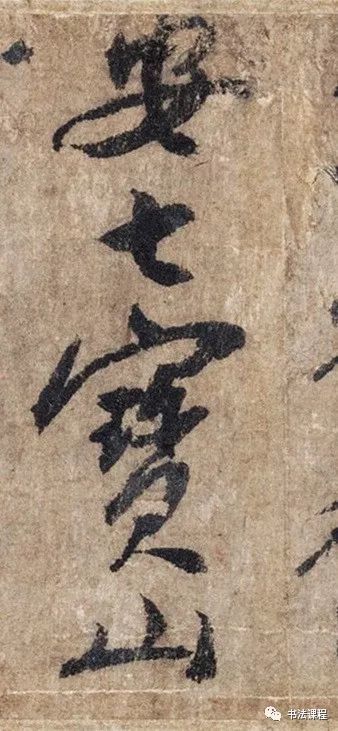 安七寶山
书法课程